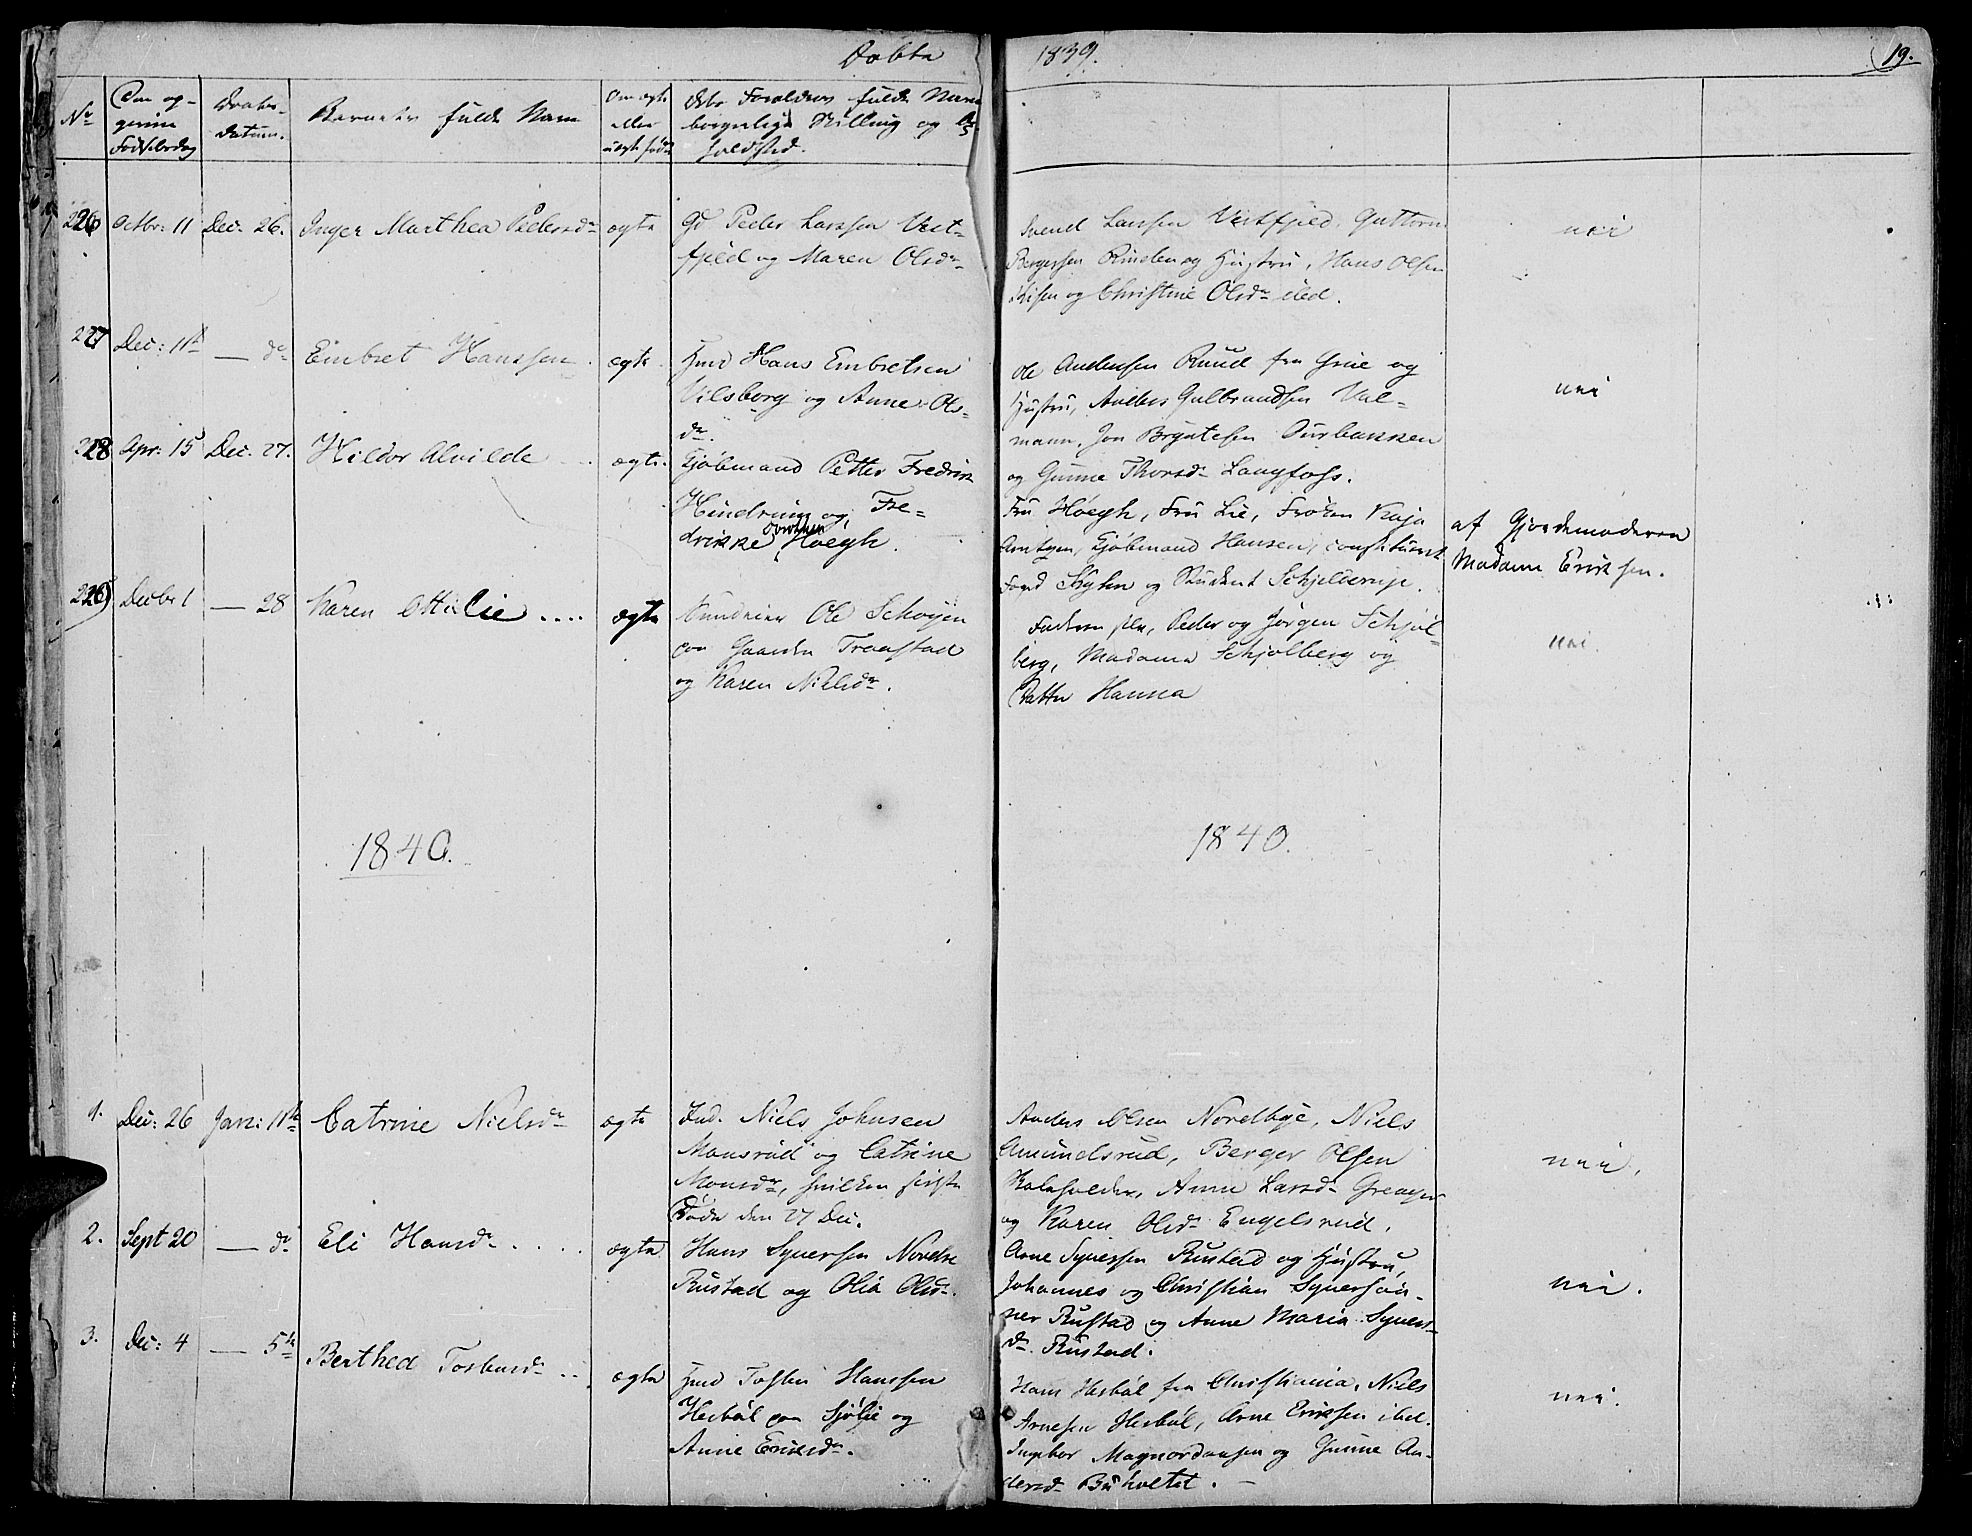 Døbte 1839. 19.
No
Den op-
givne
Fødselsdag
Daabs-
datum.
Barnets fulde Navn
Om ægte
eller
uægte født
Dets Forældres fulde Navn
borgerlige Stilling og
holdsted.
226 Octbr: 11 Dec. 26. Inger Marthea Pedersdr ægte
Gd Peder Larssen Vest-
fjeld og Maren Olsdr
Svend Larssen Vestfjeld, Guttorm
Bergersen Rinden og Hustru, Hans Olsen
og Christine Olsdr ibd.
nei
227 Dec: 11te — do Embret Hanssen ægte.
Hmd Hans Embretsen
Vilsborg og Anne Ols-
dr.
Ole Andersen Ruud fra Grue og
Hustru, Anders Gulbrandsen Val-
mann, Jon Bryntesen
og Gunne Thorsdr Langfoss.
nei
228 Apr: 15 Dec. 27. Hildor Alvilde ægte.
Kjøbmand Petter Fredrik
og Fre-
drikke Dorthea Høegh.
Fru Høegh, Fru Lie, Frøken Kaja
Arntzen, Kjøbmand Hansen, constitueret
Foged og Student Schjelderup.
af Gjordemoderen
Madame Eriksen.
229 Decbr 1 — 28 Karen Ottilie .... ægte
Ole Schøyen
paa Gaarden Traastad
og Karen Nielsdr.
Faderen selv, Peder og Jørgen Schjøl-
berg, Madame Schjølberg og
Hansea
nei.
1840. 1840.
1. Dec: 26 Jan: 11te Catrine Nielsdr ægte
Ind. Niels Johnsen
Monsrud og Catrine
Monsdr, hvilken sidste
døde den 27 Dec.
Anders Olsen Nordbye, Niels
Amundsrud, Berger Olsen
Anne Larsdr
og Karen Olsdr Engelsrud.
nei.
2. Sept 20 — do Eli Hansdr .... ægte
Hans Syversen Nordre
Rustad og Olia Olsdr.
Arne Syversen Rustad og Hustru,
Johannes og Christian Syversøn-
ner Rustad og Anne Maria Syvers-
dr. Rustad.
nei.
3. Dec: 4 — 5te Berthea Torstensdr .. ægte
Hmd Tosten Hanssen
Hesbøl paa Sjølie og
Anne Eriksdr.
Hans Hesbøl fra Christiania, Niels
Arnesen Hesbøl, Arne Eriksen ibd.
Ingebor Magnordansen og Gunne An-
dersdr Buholtet.
nei.